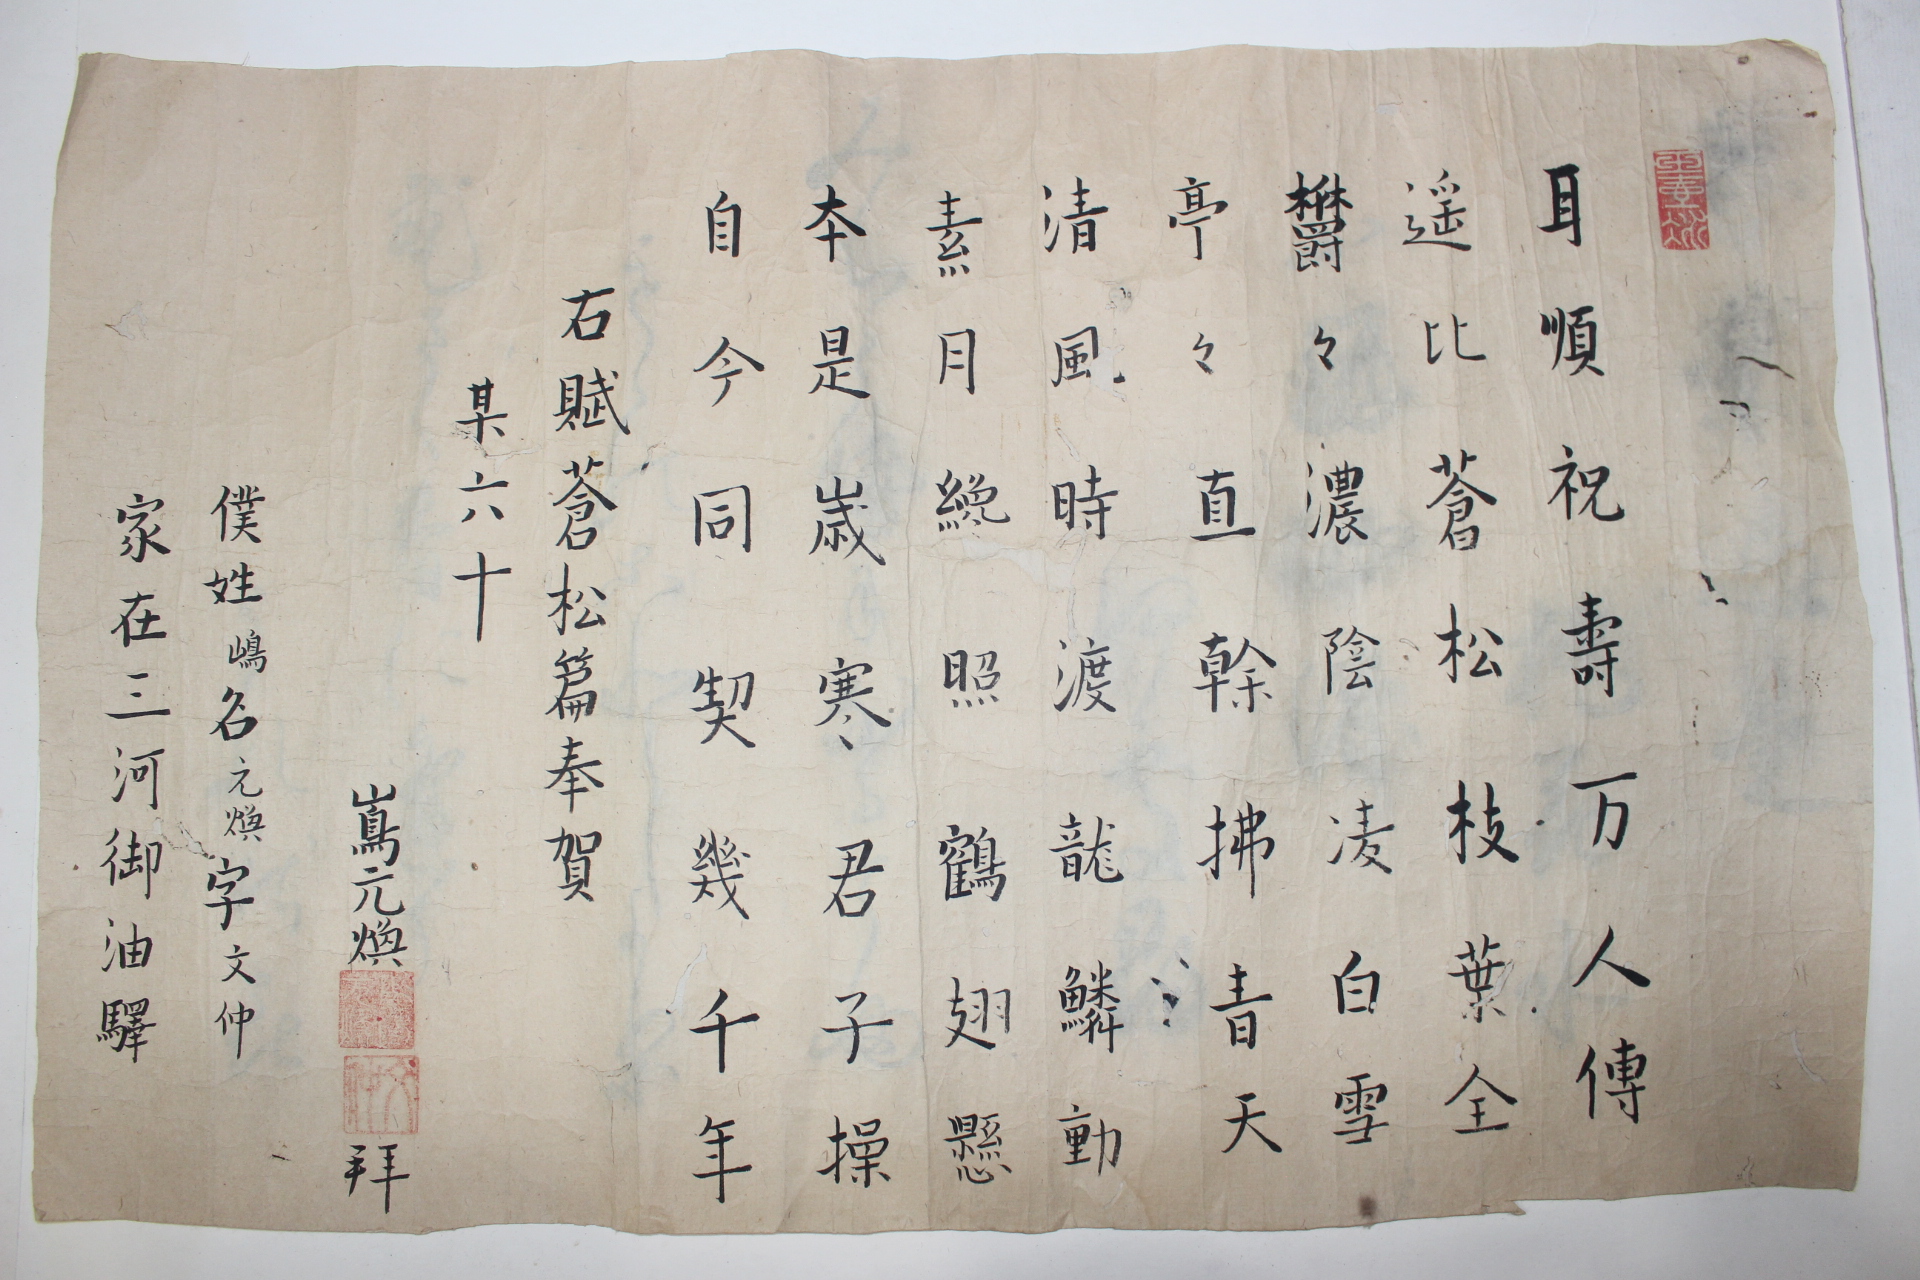 耳順祝壽万人傳
遥比蒼松枝葉全
欝々濃陰凌白雪
亭々直幹拂青天
清風時渡龍鱗動
素月纔照鶴翅懸
本是歳寒君子操
自今同契幾千年
右賦蒼松篇奉賀
某六十
嶌元煥拜
僕姓嶋名元煥字文仲
家在三河御油驛